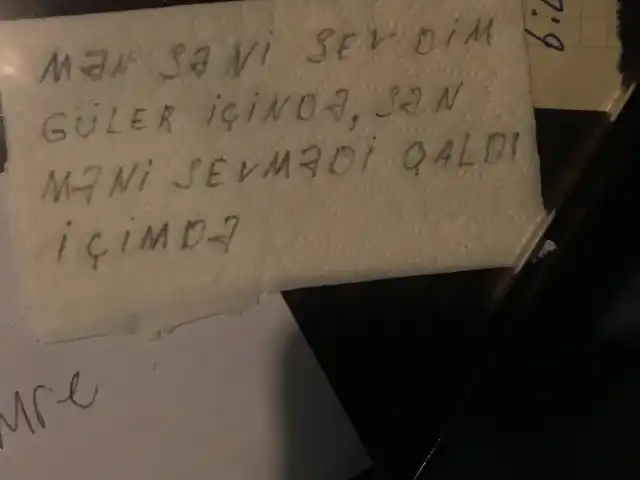 MƏN SƏNİ SEVDİM
GÜLER İÇİNDƏ, SƏN
MƏNİ SEVMƏDİ QALDI
İÇİMDƏ